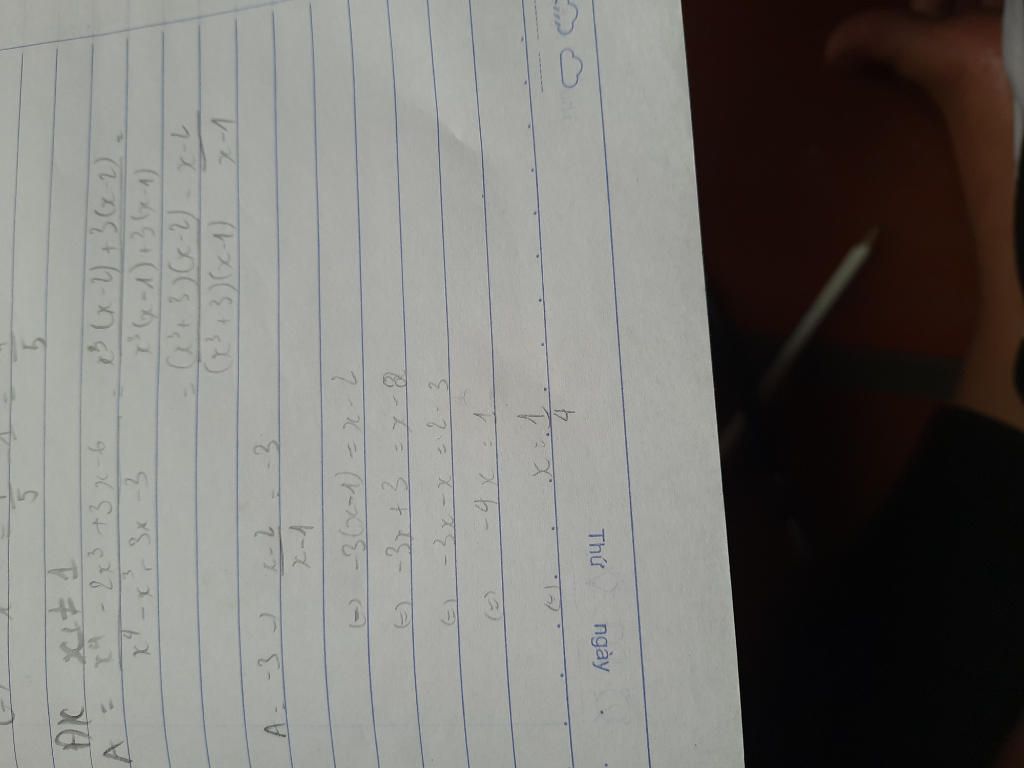 ĐK x ≠ 1
A = \frac{x^4 - 2x^3 + 3x - 6}{x^4 - x^3 + 3x - 3} = \frac{x^3(x-2) + 3(x-2)}{x^3(x-1) + 3(x-1)} =
= \frac{(x^3+3)(x-2)}{(x^3+3)(x-1)} = \frac{x-2}{x-1}
A = -3 → \frac{x-2}{x-1} = -3
(=) -3(x-1) = x-2
(=) -3x + 3 = x - 2
(=) -3x - x = -2 - 3
(=) -4x = 1
(=) x = \frac{1}{4}
Thứ ngày